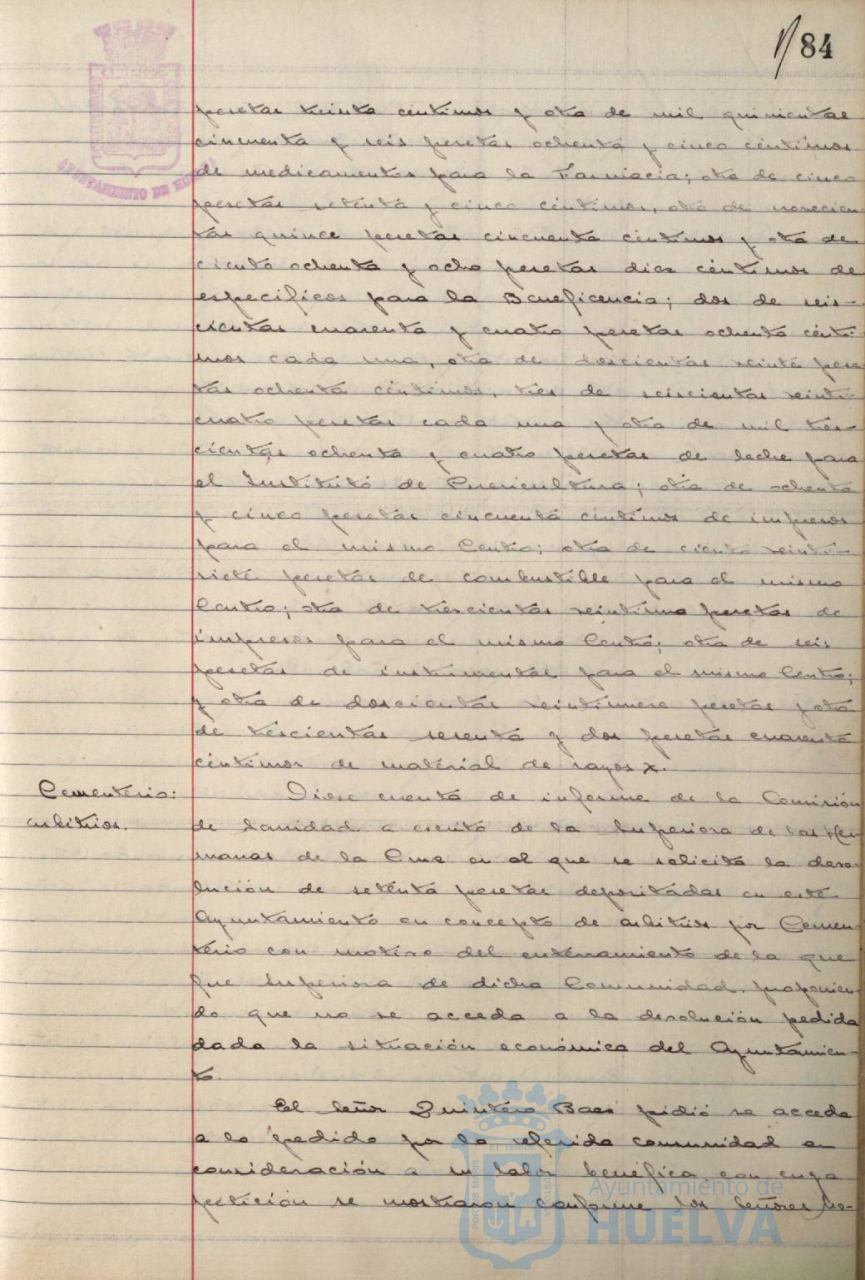 84
AYUNTAMIENTO DE HUELVA
pesetas treinta centimos y otra de mil quinientas
cincuenta y seis pesetas ochenta y cinco centimos
de medicamentos para la Farmacia; otra de cinco
pesetas setenta y cinco centimos, otra de novecien-
tas quince pesetas cincuenta centimos y otra de
ciento ochenta y ocho pesetas diez centimos de
especificos para la Beneficencia; dos de seis-
cientas cuarenta y cuatro pesetas ochenta centi-
mos cada una, otra de doscientas veinte pese
tas ochenta centimos, tres de seiscientas veinti-
cuatro pesetas cada una y otra de mil tres-
cientas ochenta y cuatro pesetas de leche para
el Instituto de Puericultura; otra de ochenta
y cinco pesetas cincuenta centimos de impresos
para el mismo Centro; otra de ciento veinti-
siete pesetas de combustible para el mismo
Centro; otra de trescientas veintiuna pesetas de
impresos para el mismo Centro; otra de seis
pesetas de instrumental para el mismo Centro;
y otra de doscientas veintinueve pesetas y otra
de trescientas sesenta y dos pesetas cuarenta
centimos de material de rayos X.
Cementerio:
arbitrios.
Diose cuenta de informe de la Comisión
de Sanidad a escrito de la Superiora de las Her-
manas de la Cruz en el que se solicita la devo-
lución de setenta pesetas depositadas en este
Ayuntamiento en concepto de arbitrios por Cemen-
terio con motivo del enterramiento de la que
fue Superiora de dicha Comunidad, proponien-
do que no se acceda a la devolución pedida
dada la situación económica del Ayuntamien-
to.
El Señor Quintero Baez pidió se acceda
a lo pedido por la referida comunidad en
consideración a su labor benéfica con cuya
petición se mostraron conforme los Señores
Ayuntamiento de
HUELVA